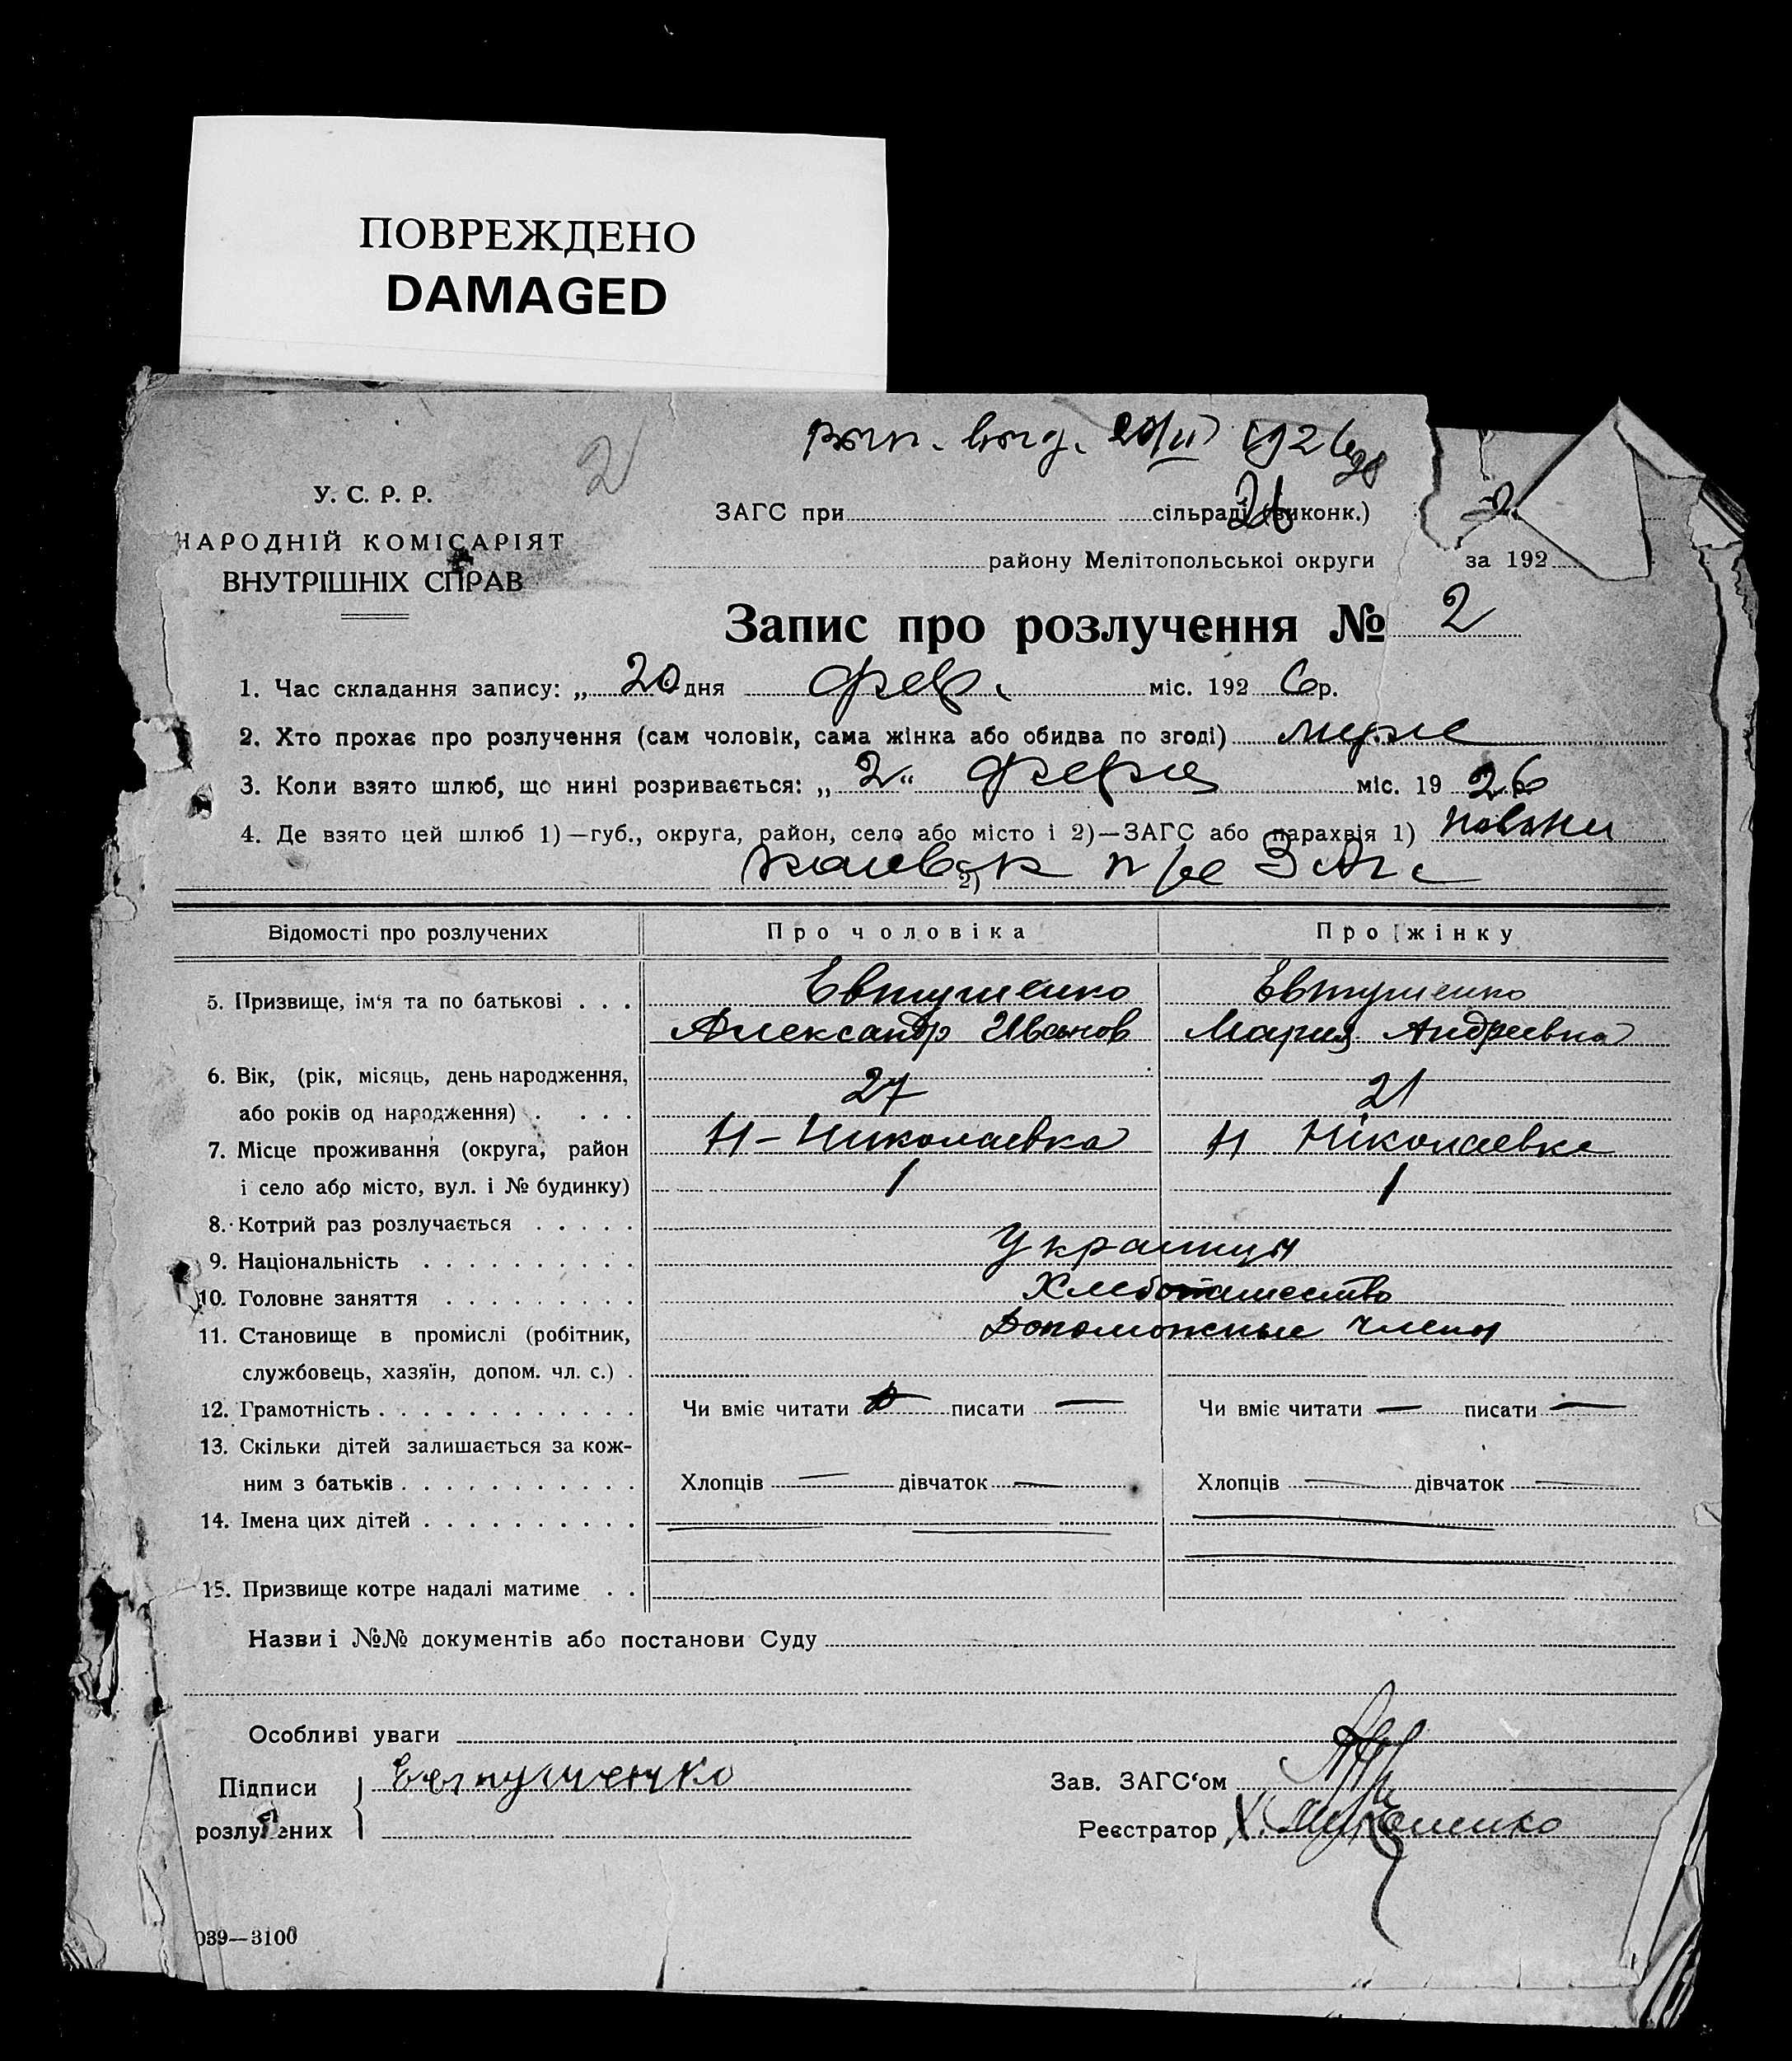 ПОВРЕЖДЕНО
DAMAGED
2
20/II 1926
28
У. С. Р. Р.
НАРОДНІЙ КОМІСАРІЯТ
ВНУТРІШНІХ СПРАВ
ЗАГС при сільраді (виконк.) 26
району Мелітопольської округи за 192
Запис про розлучення № 2
1. Час складання запису: „ 20 дня фев. міс. 192 6 р.
2. Хто прохає про розлучення (сам чоловік, сама жінка або обидва по згоді)
3. Коли взято шлюб, що нині розривається: „ 2 “ февр міс. 19 26
4. Де взято цей шлюб 1)—губ., округа, район, село або місто і 2)—ЗАГС або парахвія 1)
2) ЗАГС
Відомості про розлучених Про чоловіка Про жінку
5. Призвище, ім‘я та по батькові . . . Евтушенко Евтушенко
Александр Иванов Мария Андреевна
6. Вік, (рік, місяць, день народження,
або років од народження) . . . . 27 21
7. Місце проживання (округа, район Н-Николаевка Н Ніколаевка
і село або місто, вул. і № будинку) 1 1
8. Котрий раз розлучається . . . . .
9. Національність . . . . . . . . . . Украинцы
10. Головне заняття . . . . . . . . . Хлебопашество
11. Становище в промислі (робітник, Допоможные члены
службовець, хазяїн, допом. чл. с.) .
12. Грамотність . . . . . . . . . . . . Чи вміє читати — писати — Чи вміє читати — писати —
13. Скільки дітей залишається за кож-
ним з батьків . . . . . . . . . . . Хлопців — дівчаток — Хлопців — дівчаток —
14. Імена цих дітей . . . . . . . . . .
15. Призвище котре надалі матиме . .
Назви і №№ документів або постанови Суду
Особливі уваги
Підписи Евтушенко Зав. ЗАГС‘ом
розлучених Реєстратор
039—3100